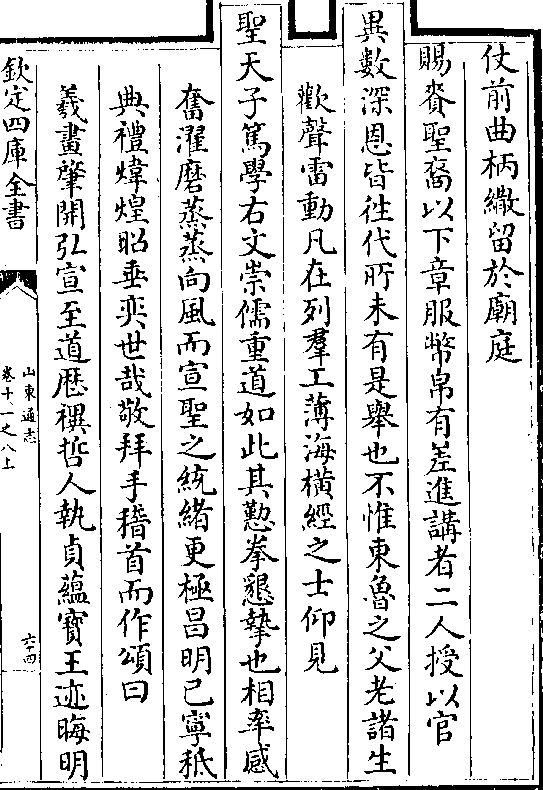 仗前曲柄繖留於廟庭
賜賚聖裔以下章服幣帛有差進講者二人授以官
異數深恩皆徃代所未有是舉也不惟東魯之父老諸生
歡聲雷動凡在列羣工薄海横經之士仰見
聖天子篤學右文崇儒重道如此其懃拳懇摯也相率感
奮濯磨蒸蒸向風而宣聖之統緒更極昌明已寧秪
典禮煒煌昭垂奕世哉敬拜手稽首而作頌曰
羲畫肇開弘宣至道歴禩哲人執貞蘊寳王迹晦明
欽定四庫全書
山東通志
卷十一之八上
六十四